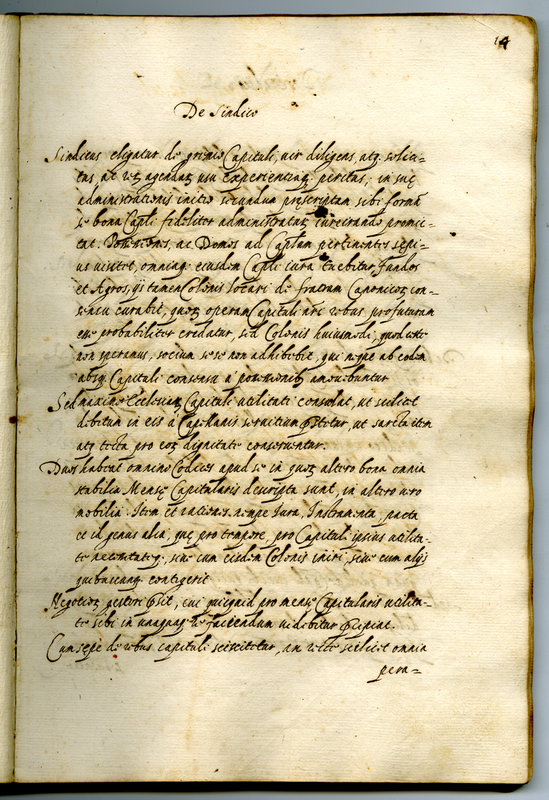 14
De Sindico
Sindicus eligatur de gremio Capituli, uir diligens, atq. solici=
tus ac rerum agendarum usu experientiaq. peritus, in suę
administrationis initio secundum prescriptam sibi formã
se bona Capli fideliter administraturum iureiurando promit=
tat. Possessiones, ac Domos ad Caplum pertinentes sępi=
us uisitet, omniaq. eiusdem Capli iura tuebitur, fundos
et Agros, ijs tamen Colonis locari de fratrum Canonicorum con=
sensu curabit, quorum operam Capituli nr̃i rebus profuturam
esse probabiliter credatur, sed Colonis huiusmodi, quod certe
non speramus, socium sese non adhibebit, qui nẽpe ab eodem
absq. Capituli consensu a possessionib. amouebuntur
Sed maxime Ecclesiarum Capituli utilitati consulat, ut scilicet
debitum in eis à Capellanis seruitium pr̃stetur, ut sarcta item
atq tecta pro eorum dignitate conseruentur.
Duos habeat omnino Codices apud se in quorum altero bona omnia
stabilia Mensę Capitularis descripta sunt, in altero uero
mobilia. Item et rationes nempe Iura, Instrumenta, pacta
et id genus alia, quę pro tempore, pro Capituli ipsius utilita=
te necessitateq., siue cum eisdem Colonis iniri, siue cum alijs
quibuscunq. contigerit
Negotiorum gestori pr̃sit, cui quicquid pro mensę Capitularis utilita=
te sibi in unaquaq. re faciendum uidebitur pr̃cipiat.
Cum sepe de rebus capituli sciscitetur, an recte scilicet omnia
pera=